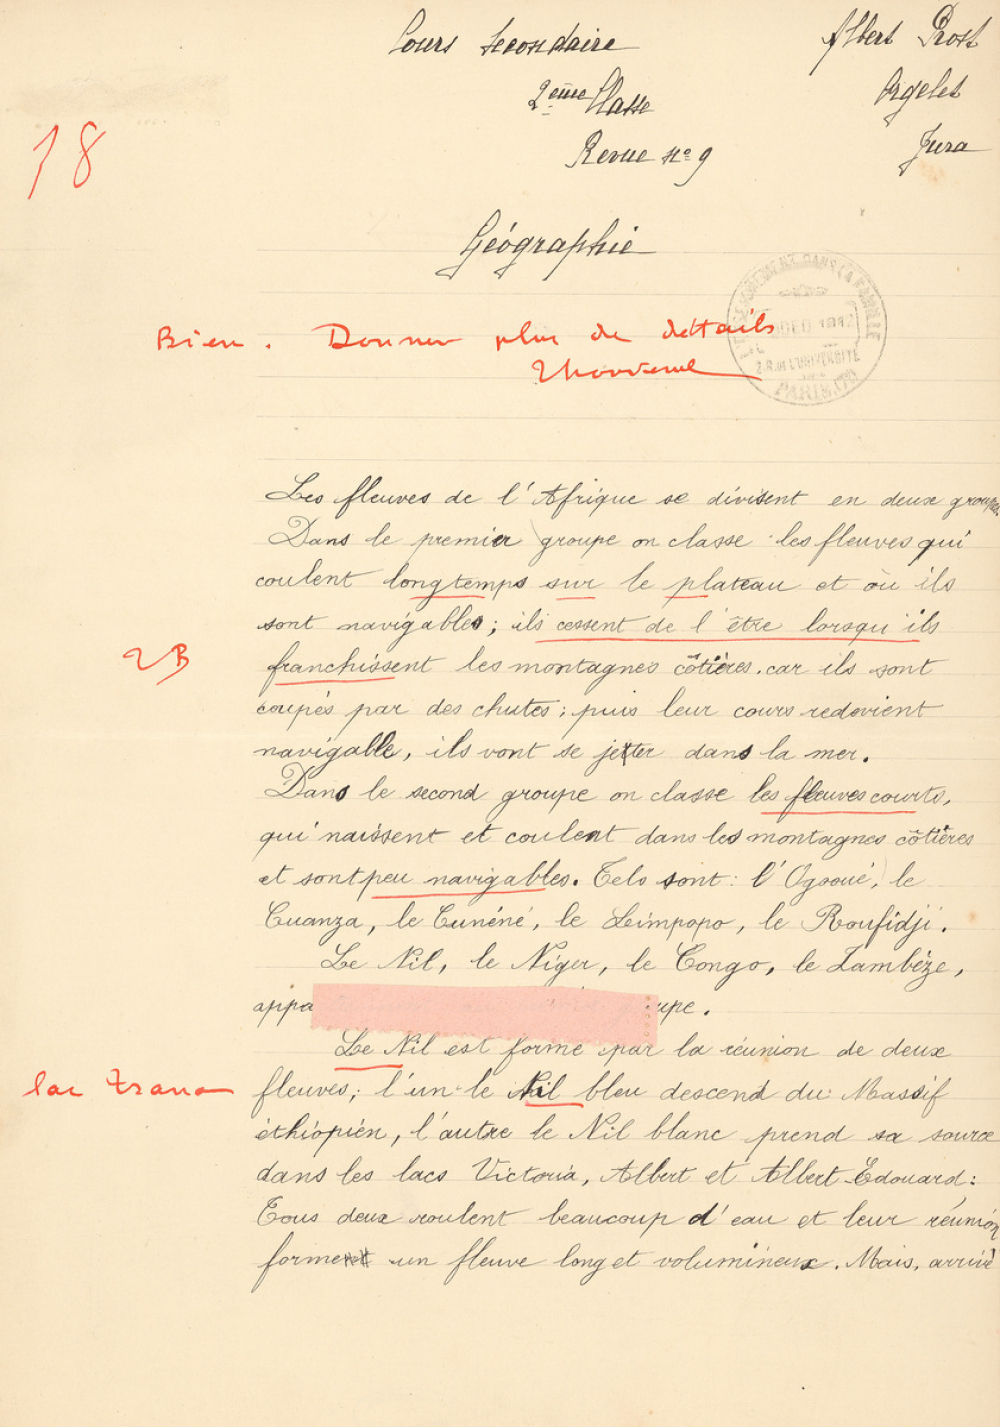 Cours Secondaire
Albert Prost
2ème Classe
Orgelet
Revue nº 9
Jura
18
Géographie
Bien. Donner plus de détails
L'ENSEIGNEMENT DANS LA FAMILLE
1912
2.R. DE L'UNIVERSITÉ
PARIS (7e)
Les fleuves de l'Afrique se divisent en deux groupes.
Dans le premier groupe on classe les fleuves qui
coulent longtemps sur le plateau et où ils
sont navigables; ils cessent de l'être lorsqu'ils
TB
franchissent les montagnes côtières. car ils sont
coupés par des chutes; puis leur cours redevient
navigable, ils vont se jetter dans la mer.
Dans le second groupe on classe les fleuves courts,
qui naissent et coulent dans les montagnes côtières
et sont peu navigables. Tels sont: l'Ogooué, le
Cuanza, le Cunéné, le Limpopo, le Roufidji.
Le Nil, le Niger, le Congo, le Zambèze,
appa upe.
Le Nil est formé par la réunion de deux
lac Tzana
fleuves; l'un le Nil bleu descend du Massif
éthiopien, l'autre le Nil blanc prend sa source
dans les lacs Victoria, Albert et Albert-Edouard:
Tous deux roulent beaucoup d'eau et leur réunion
forment un fleuve long et volumineux. Mais, arrivé